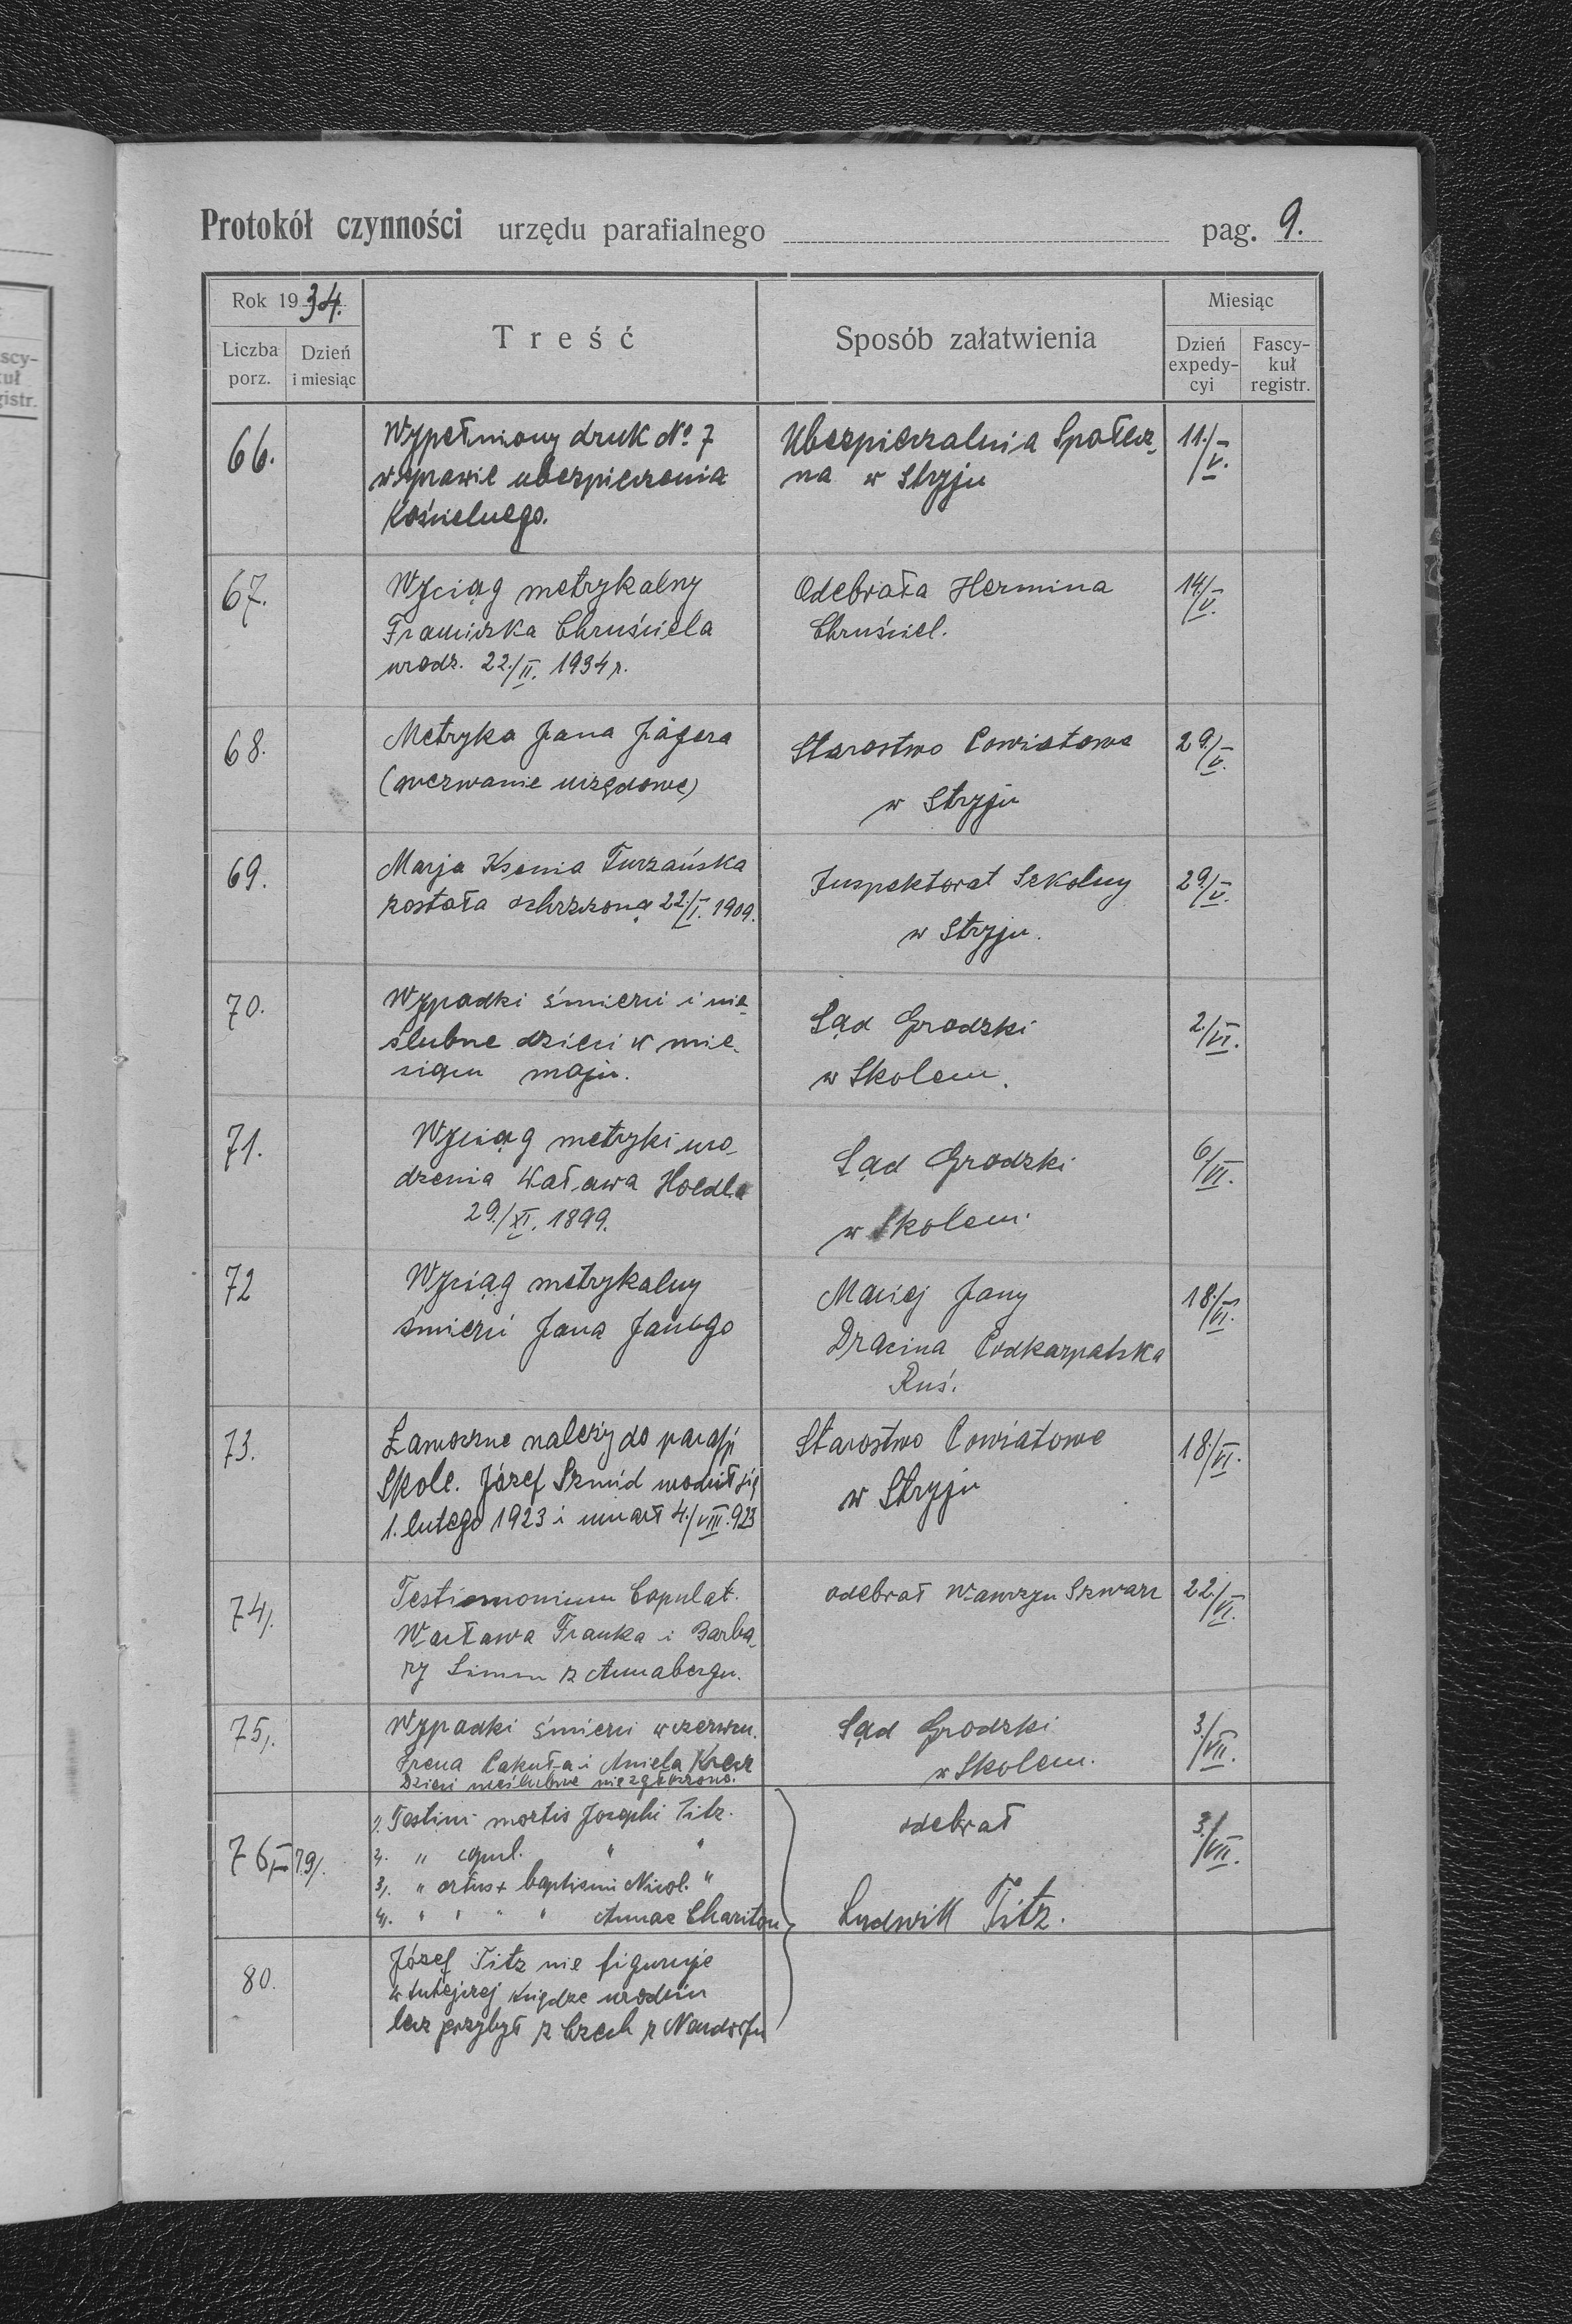 Protokół czynności urzędu parafialnego pag. 9.
Rok 1934.
Treść
Sposób załatwienia
Miesiąc
Liczba porz.
Dzień i miesiąc
Dzień expedy-cyi
Fascy-kuł registr.
66.
Wypełniony druk No. 7
w sprawie ubezpieczenia
Kościelnego.
Ubezpieczalnia Społecz-
na w Stryju
11./V.
67.
Wyciąg metrykalny
Franciszka Chruściela
urodz. 22./II. 1934 r.
Odebrała Hermina
Chruściel.
14./V.
68.
Metryka Jana Jägera
(wezwanie urzędowe)
Starostwo Powiatowe
w Stryju
29./V.
69.
Marja Ksenia Turzańska
została ochrzczoną 22./I. 1909.
Inspektorat Szkolny
w Stryju.
29./V.
70.
Wypadki śmierci i nie-
ślubne dzieci w mie-
siącu maju.
Sąd Grodzki
w Skolem.
2./VI.
71.
Wyciąg metryki uro-
dzenia Wacława Hoedla
29./XI. 1899.
Sąd Grodzki
w Skolem.
6/VI.
72
Wyciąg metrykalny
śmierci Jana Janego
Maciej Jany
Dracina Podkarpatska
Ruś.
18./VI.
73.
Ławoczne należy do parafji
Skole. Józef Szmid urodził się
1. lutego 1923 i umarł 4./VIII. 923
Starostwo Powiatowe
w Stryju
18/VI.
74.
Testimonium Copulat.
Wacława Franka i Barba-
ry Simm z Annabergu.
odebrał Wawrzyn Szwarc
22./VI.
75.
Wypadki śmierci w czerwcu.
Irena Cakuła i Aniela Krecz
Dzieci nieślubne nie zgłoszono.
Sąd Grodzki
w Skolem.
3./VII.
76,-79.
1. Testim mortis Josephi Titz.
2. " copul. " "
3. " ortus + baptismi Nicol. "
4. " " " " Annae Chariton
odebrał
Ludwik Titz.
3./VII.
80.
Józef Titz nie figuruje
w tutejszej księdze urodzin
lecz przybył z Czech z Neudorfu